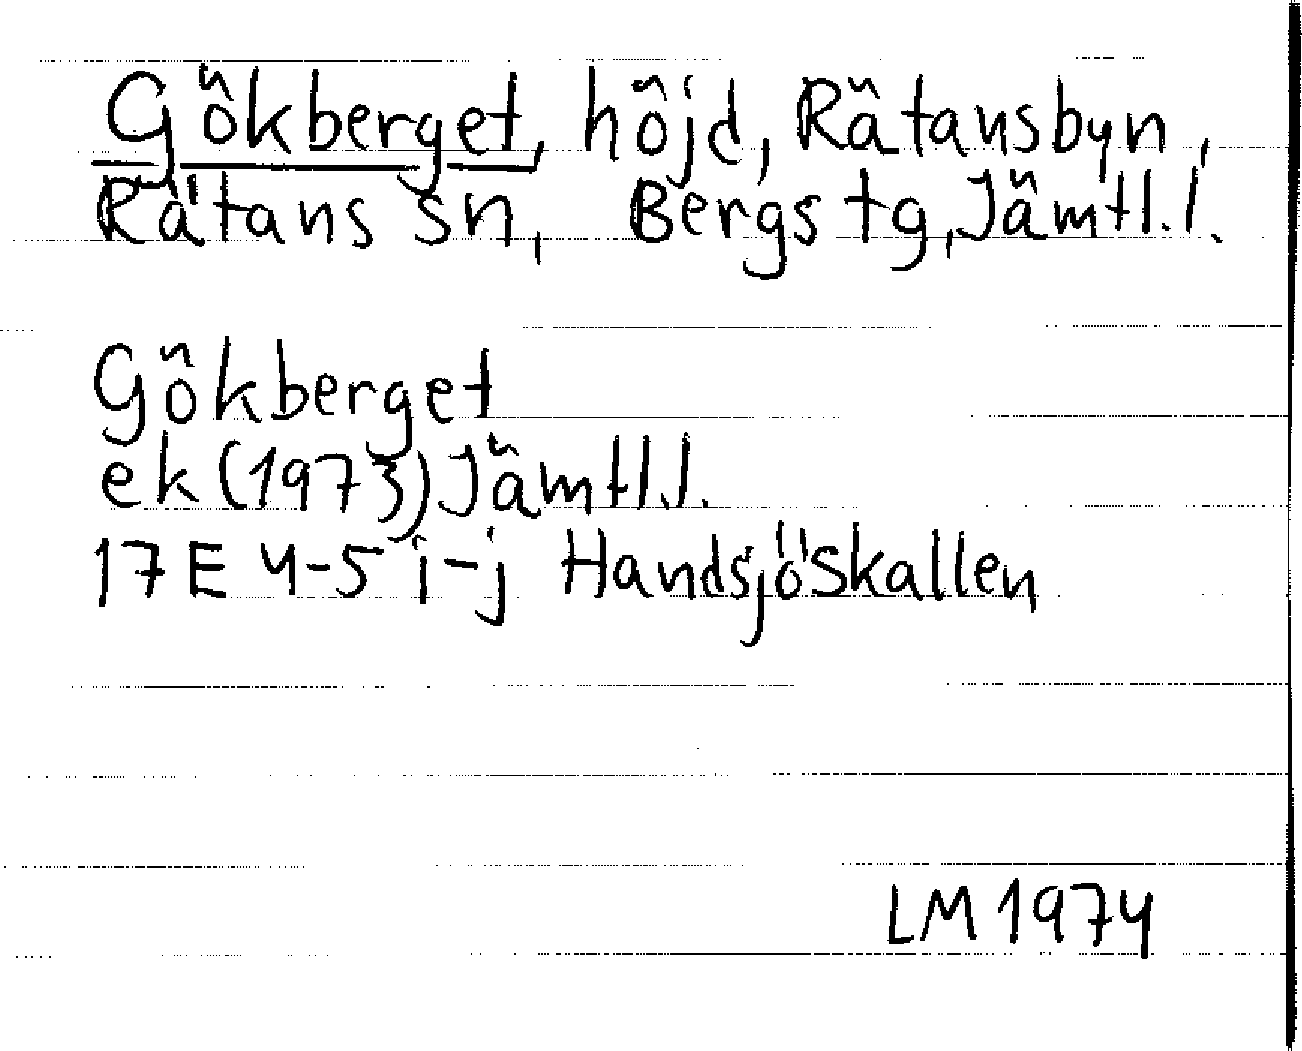 Gökberget, höjd, Rätansbyn,
Rätans sn, Bergs tg, Jämtl.l.
Gökberget
ek (1973) Jämtl.l.
17 E 4-5 i-j Handsjöskallen
LM 1974